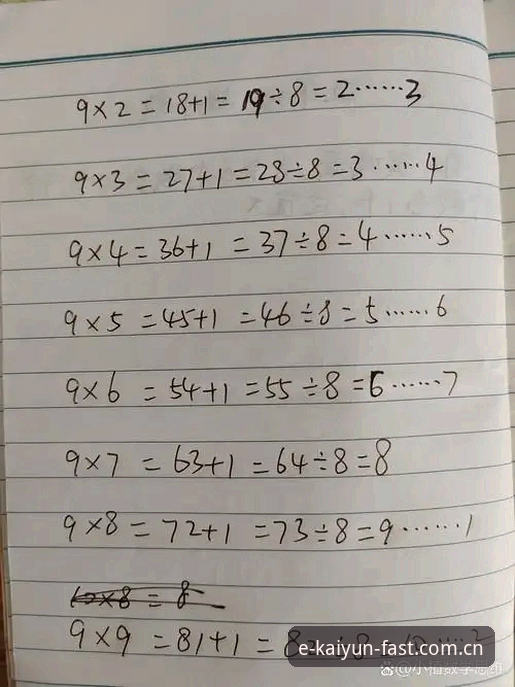 9×2=18+1=19÷8=2······3
9×3=27+1=28÷8=3·····4
9×4=36+1=37÷8=4······5
9×5=45+1=46÷8=5······6
9×6=54+1=55÷8=6······7
9×7=63+1=64÷8=8
9×8=72+1=73÷8=9······1
10×8=8
9×9=81+1=82÷8
e-kaiyun-fast.com.cn